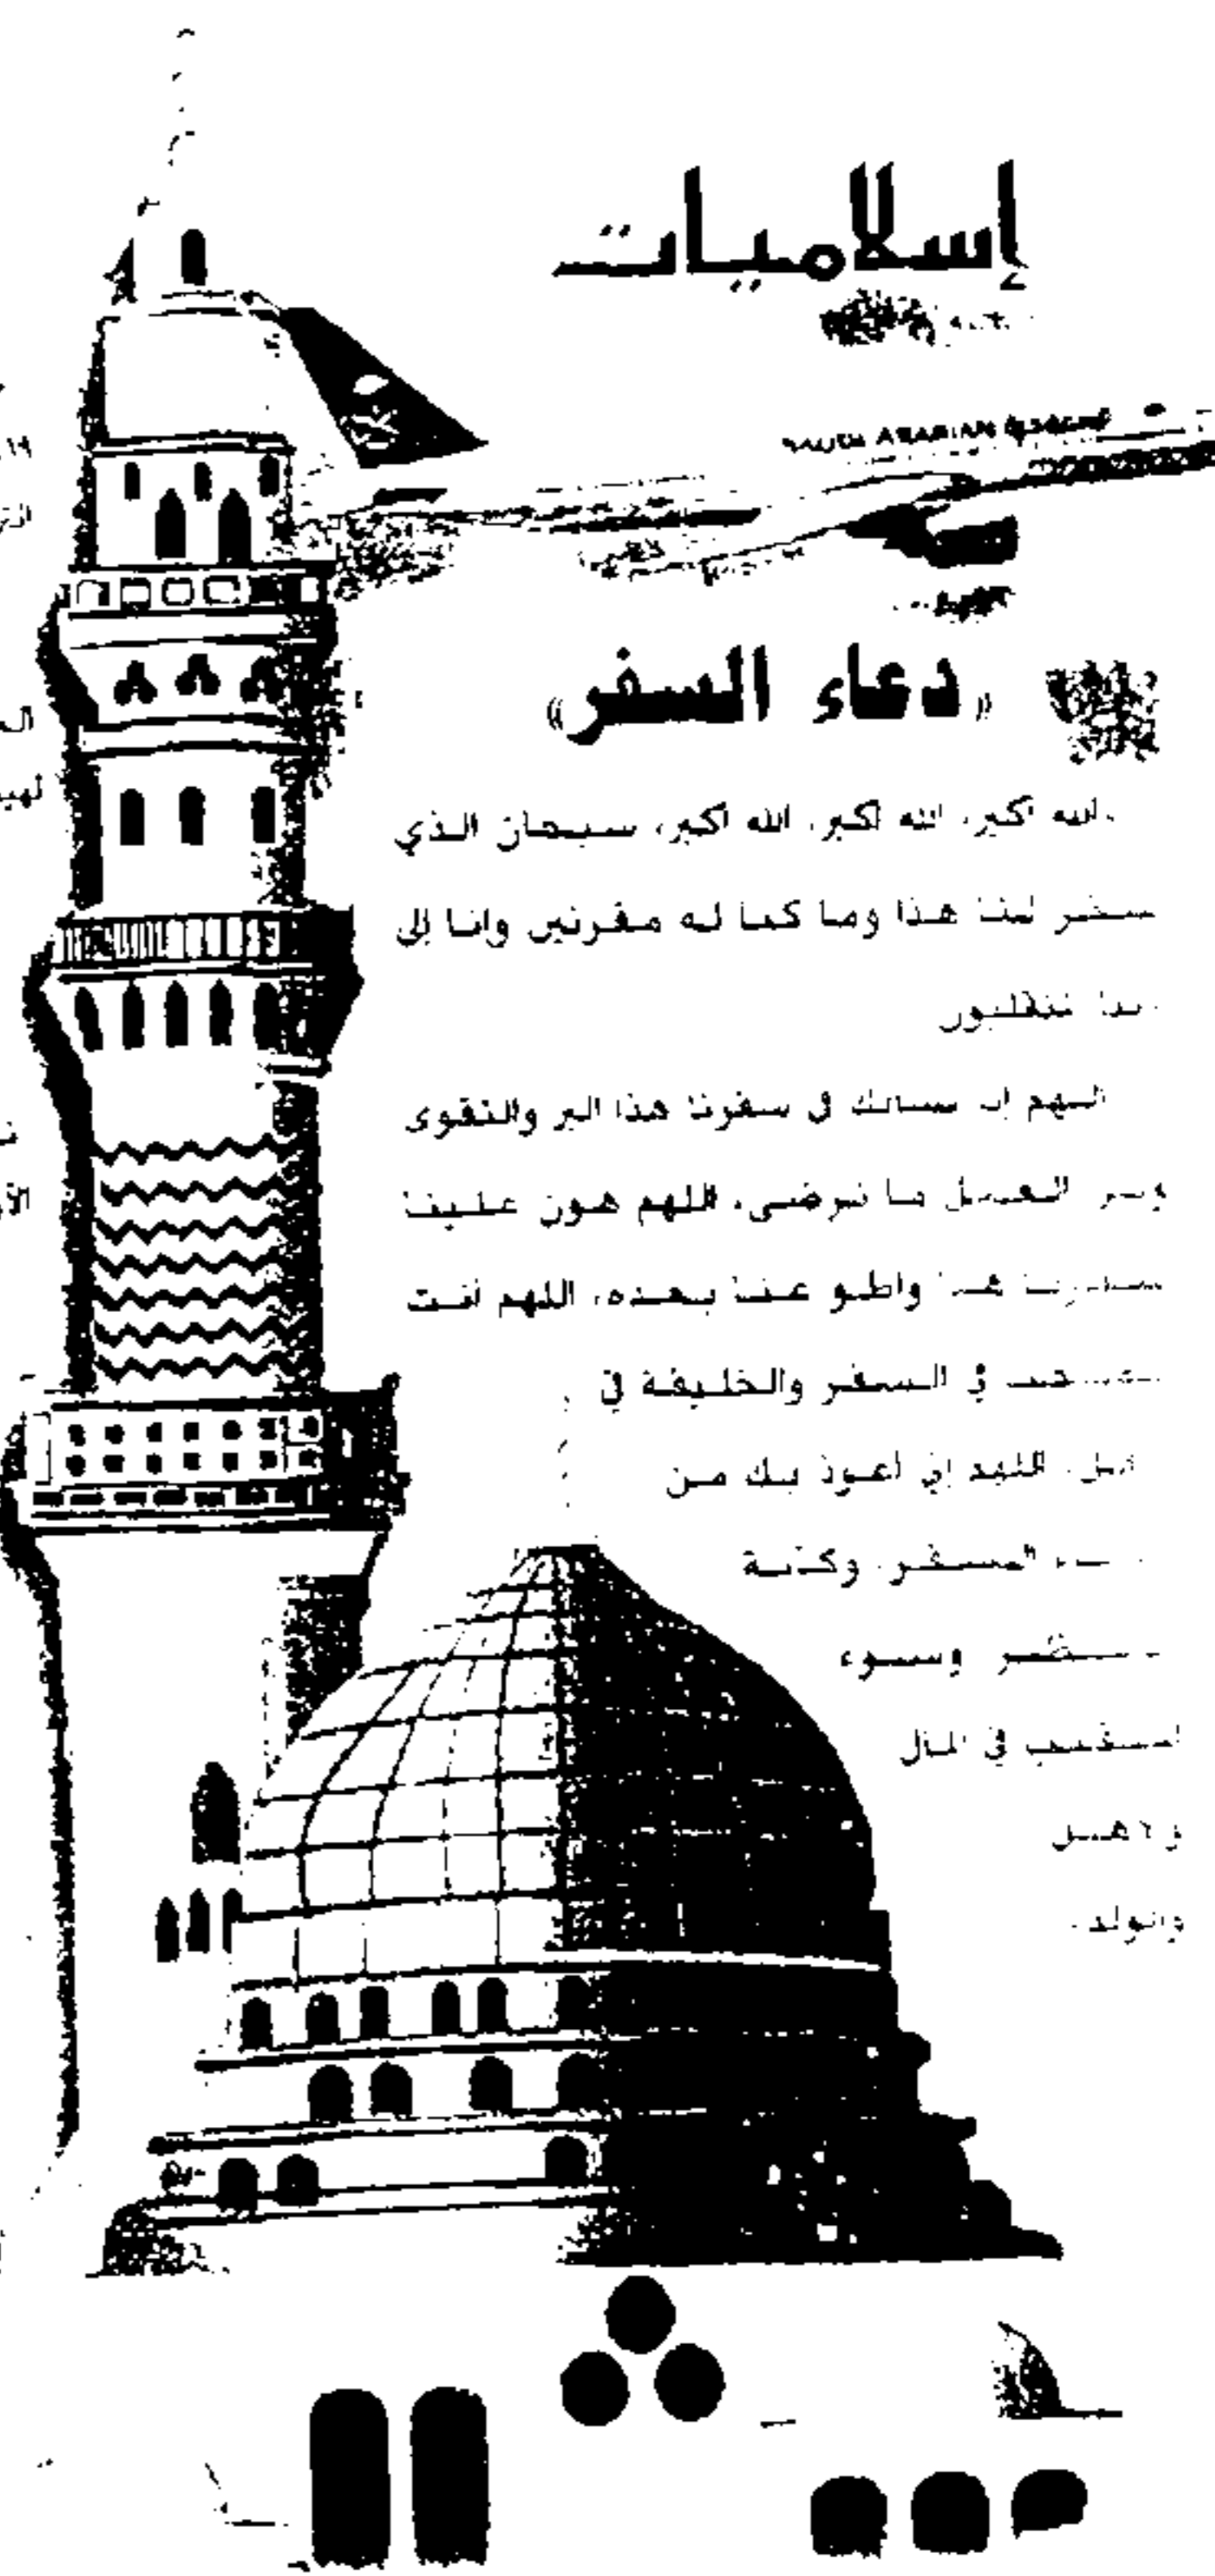 إسلاميات
SAUDI ARABIAN السعودية
«دعاء السفر»
الله اكبر، الله اكبر، الله اكبر، سبحان الذي
سخر لنا هذا وما كنا له مقرنين وانا إلى
ربنا لمنقلبون
اللهم إنا نسالك في سفرنا هذا البر والتقوى
ومن العمل ما ترضى، اللهم هون علينا
سفرنا هذا واطو عنا بعده، اللهم انت
الصاحب في السفر والخليفة في
الاهل، اللهم إني اعوذ بك من
السفر، وكآبة
المنظر وسوء
المنقلب في المال
والاهل
والولد.